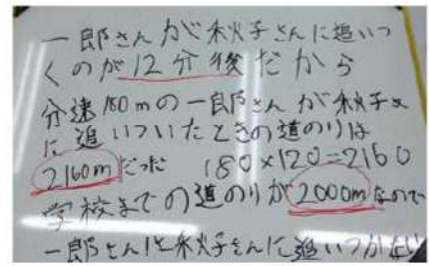 一郎さんが秋子さんに追いつ
くのが12分後だから
分速180mの一郎さんが秋子さん
に追いついたときの道のりは
2160mだった 180×120=2160
学校までの道のりが2000mなので
一郎さんは秋子さんに追いつかない